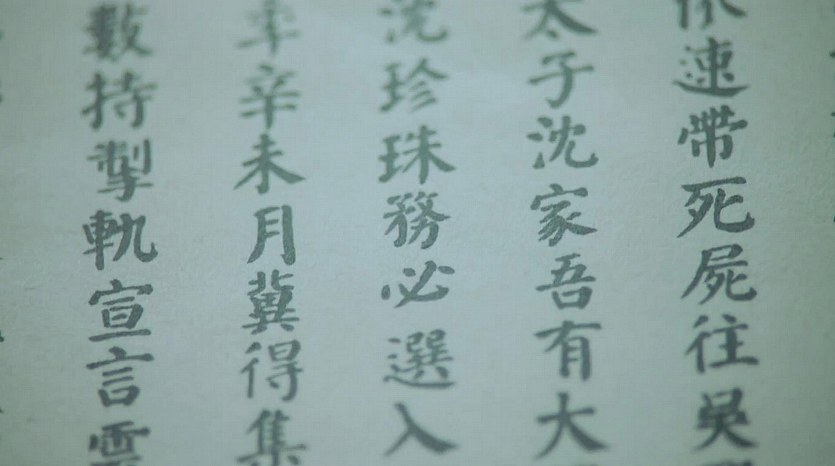 速帶死屍往吳
太子沈家吾有大
沈珍珠務必選入
辛未月冀得集
數持掣軌宣言